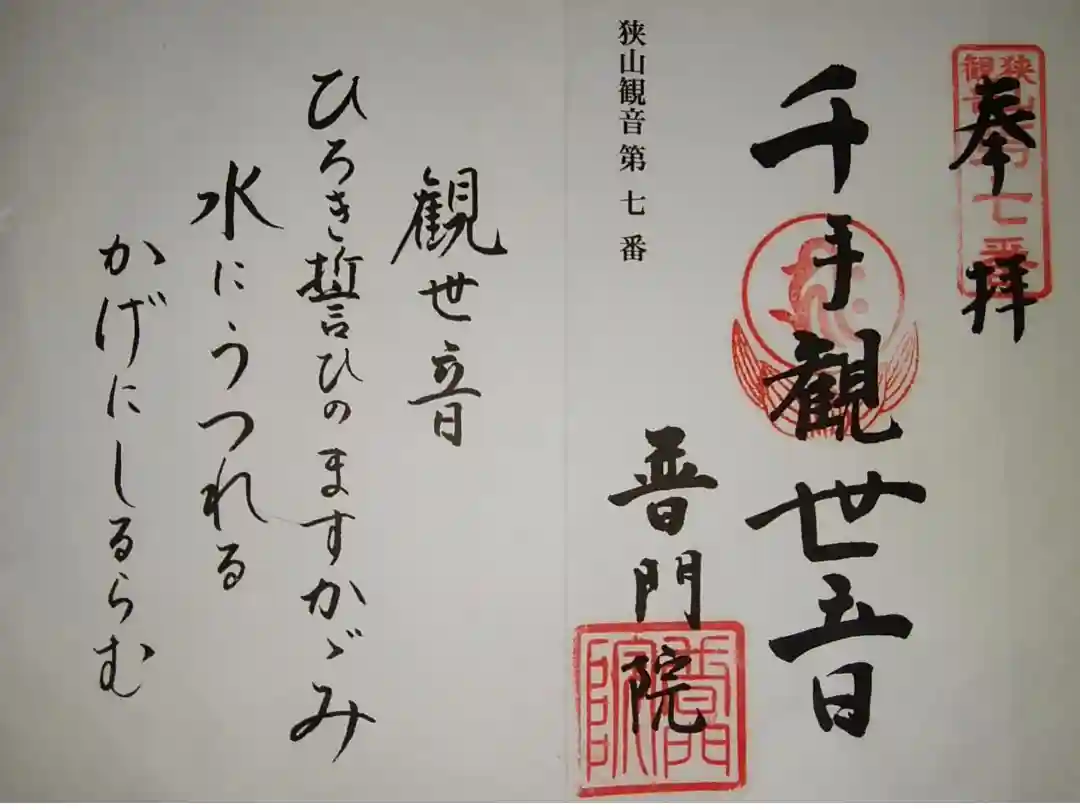 狭山観音第七番
奉拝
千手観世音
狭山観音第七番
普門院
普門院
観世音
ひろき誓ひのますかゞみ
水にうつれる
かげにしるらむ